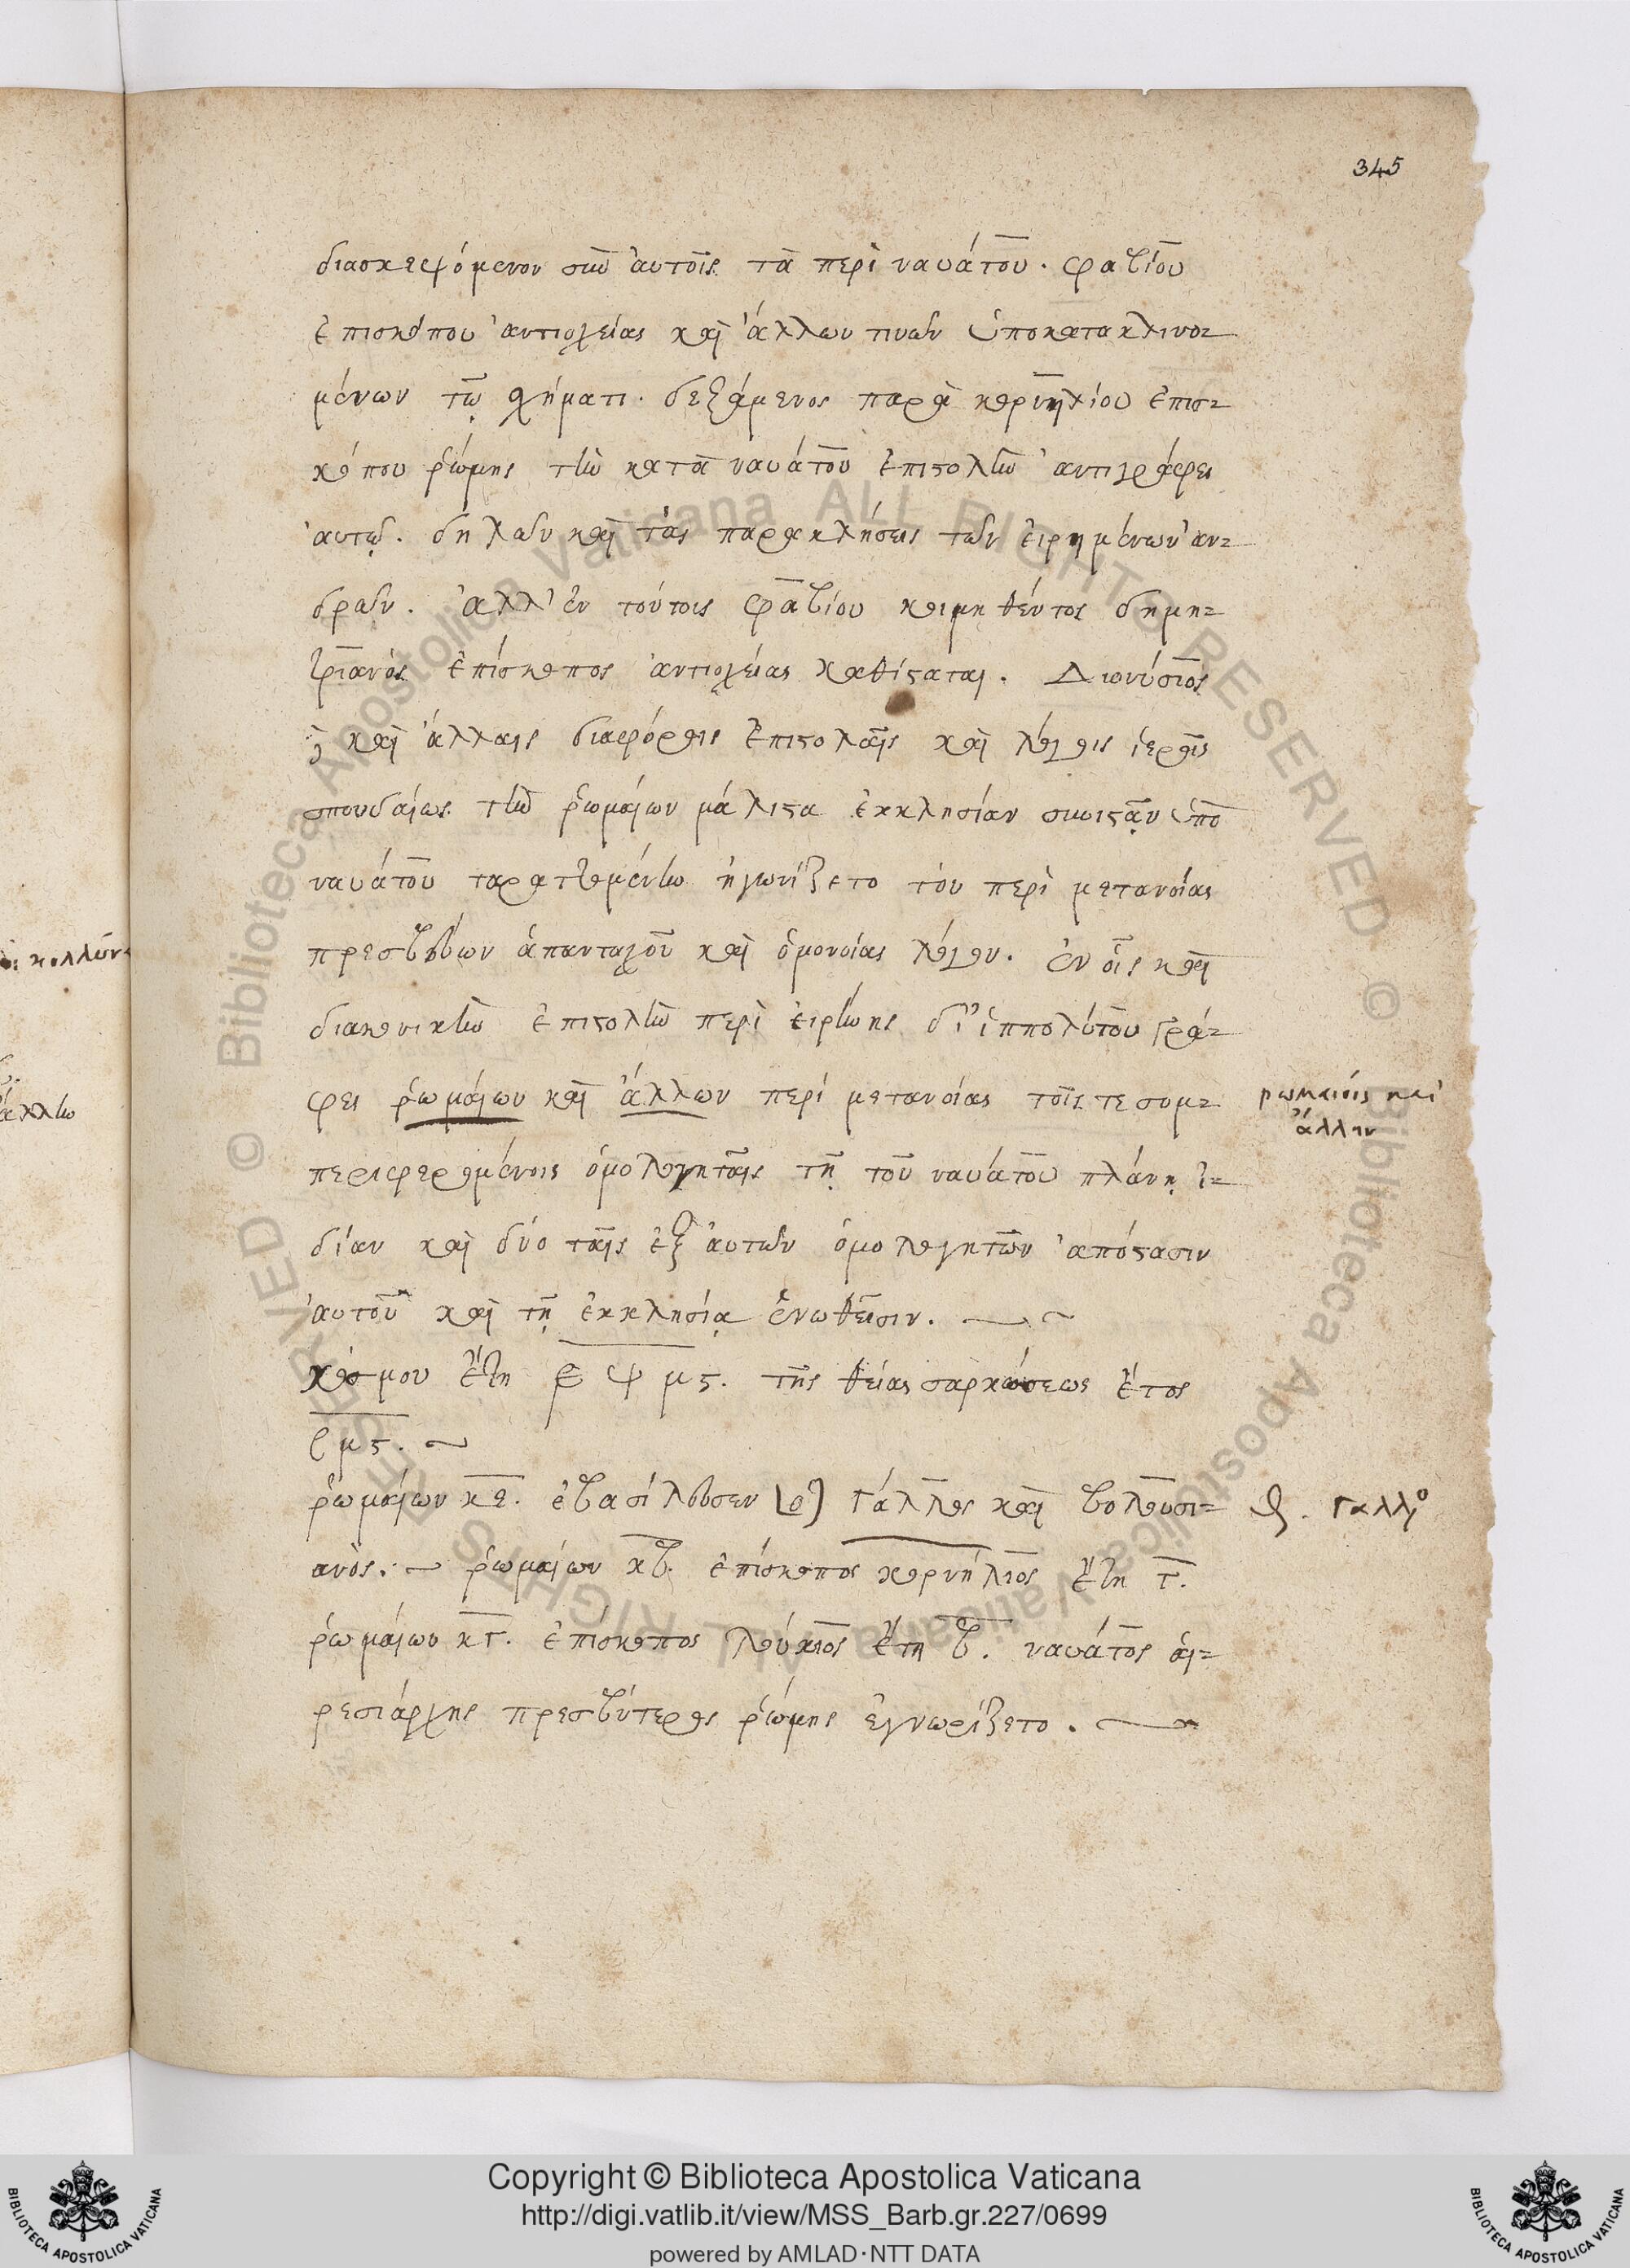 345
διασκεψόμενον σὺν αὐτοῖς τὰ περὶ ναυάτου. φαβίου
ἐπισκόπου ἀντιοχείας καὶ ἄλλων τινῶν ὑποκατακλινο=
μένων τῷ χήματι. δεξάμενος παρὰ κορνηλίου ἐπισ=
κόπου ῥώμης τὴν κατὰ ναυάτου ἐπιστολὴν ἀντιγράφει
αὐτῷ. δηλῶν καὶ τὰς παρακλήσεις τῶν εἰρημένων ἀν=
δρῶν. ἀλλ' ἐν τούτοις φαβίου κοιμηθέντος δημη=
τριανὸς ἐπίσκοπος ἀντιοχείας καθίσταται. Διονύσιος
καὶ ἄλλαις διαφόροις ἐπιστολαῖς καὶ λόγοις ἱεροῖς
σπουδαίως τὴν ῥωμαίων μάλιστα ἐκκλησίαν συνιστᾷν ὑπὸ
ναυάτου ταραττομένην ἠγωνίζετο τὸν περὶ μετανοίας
πρεσβεύων ἁπανταχοῦ καὶ ὁμονοίας λόγον. ἐν οἷς καὶ
διακονικὴν ἐπιστολὴν περὶ εἰρήνης δι' ἱππολύτου γρά=
φει ῥωμαίων καὶ ἄλλων περὶ μετανοίας τοῖς τε συμ=
ρωμαίοις καὶ
ἄλλην
περιφερομένοις ὁμολογηταῖς τῇ τοῦ ναυάτου πλάνῃ ἰ=
δίαν καὶ δύο ταῖς ἐξ αὐτῶν ὁμολογητῶν ἀπόστασιν
αὐτοῦ καὶ τῇ ἐκκλησίᾳ ἑνωθεῖσιν.
κόσμου ἔτη ε ψ μς. τῆς θείας σαρκώσεως ἔτος
σμς.
ῥωμαίων κε. ἐβασίλευσεν [ὁ] γάλλος καὶ βολουσι=
γαλλο
ανὸς. ῥωμαίων κβ. ἐπίσκοπος κορνήλιος ἔτη γ.
ῥωμαίων κγ. ἐπίσκοπος λούκιος ἔτη β. ναυάτος αἱ=
ρεσιάρχης πρεσβύτερος ῥώμης ἐγνωρίζετο.
Copyright © Biblioteca Apostolica Vaticana
http://digi.vatlib.it/view/MSS_Barb.gr.227/0699
powered by AMLAD·NTT DATA